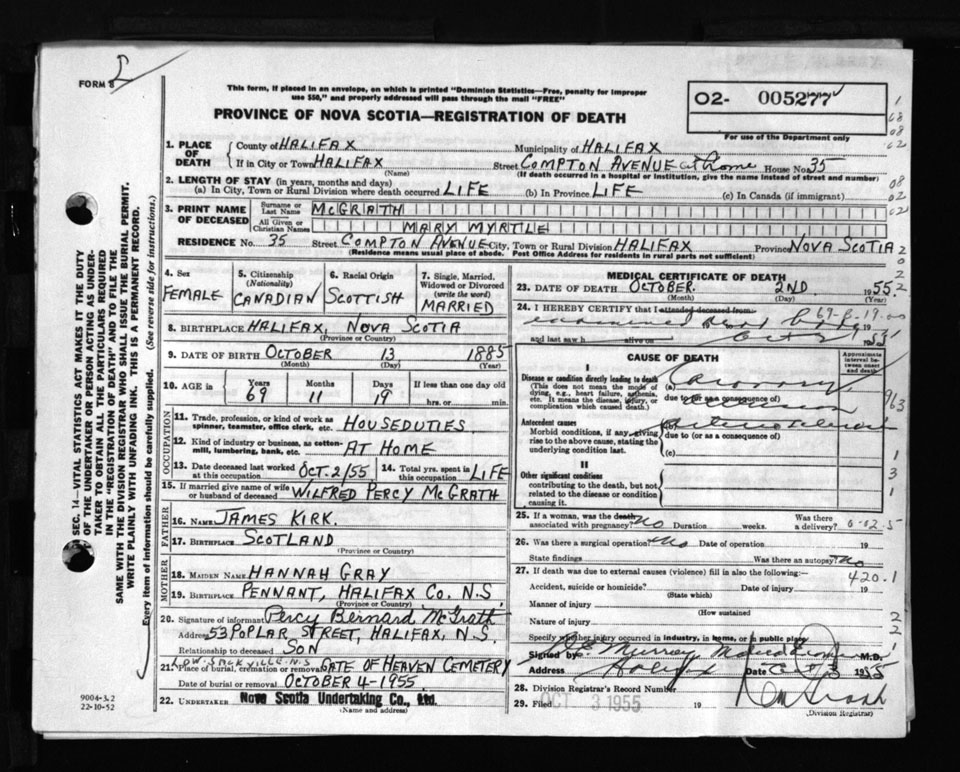 FORM 8
This form, if placed in an envelope, on which is printed "Dominion Statistics—Free, penalty for improper
use $50," and properly addressed will pass through the mail "FREE"
PROVINCE OF NOVA SCOTIA—REGISTRATION OF DEATH
02- 005277
For use of the Department only
1. PLACE OF DEATH
County of HALIFAX Municipality of HALIFAX
If in City or Town HALIFAX Street COMPTON AVENUE at home House No. 35
(Name) (If death occurred in a hospital or institution, give the name instead of street and number)
2. LENGTH OF STAY (in years, months and days)
(a) In City, Town or Rural Division where death occurred LIFE (b) In Province LIFE (c) In Canada (if immigrant)
3. PRINT NAME OF DECEASED
Surname or Last Name McGRATH
All Given or Christian Names MARY MYRTLE
RESIDENCE No. 35 Street COMPTON AVENUE City, Town or Rural Division HALIFAX Province NOVA SCOTIA
(Residence means usual place of abode. Post Office Address for residents in rural parts not sufficient)
4. Sex FEMALE
5. Citizenship (Nationality) CANADIAN
6. Racial Origin SCOTTISH
7. Single, Married, Widowed or Divorced (write the word) MARRIED
8. BIRTHPLACE HALIFAX, NOVA SCOTIA
(Province or Country)
9. DATE OF BIRTH OCTOBER 13 1885
(Month) (Day) (Year)
10. AGE in Years 69 Months 11 Days 19 If less than one day old
hrs. or min.
OCCUPATION
11. Trade, profession, or kind of work as spinner, teamster, office clerk, etc. HOUSEDUTIES
12. Kind of industry or business, as cotten-mill, lumbering, bank, etc. AT HOME
13. Date deceased last worked at this occupation OCT. 2/55 14. Total yrs. spent in this occupation LIFE
15. If married give name of wife or husband of deceased WILFRED PERCY McGRATH
FATHER
16. NAME JAMES KIRK.
17. BIRTHPLACE SCOTLAND
(Province or Country)
MOTHER
18. MAIDEN NAME HANNAH GRAY
19. BIRTHPLACE PENNANT, HALIFAX CO. N.S
(Province or Country)
20. Signature of informant Percy Bernard McGrath
Address 53 POPLAR STREET, HALIFAX, N.S.
Relationship to deceased SON
LOW. SACKVILLE. N.S
21. Place of burial, cremation or removal GATE OF HEAVEN CEMETERY
Date of burial or removal OCTOBER 4-1955
22. UNDERTAKER Nova Scotia Undertaking Co., Ltd.
(Name and address)
9004-3.2
22-10-52
MEDICAL CERTIFICATE OF DEATH
23. DATE OF DEATH OCTOBER 2ND 1955
(Month) (Day) (Year)
24. I HEREBY CERTIFY that I attended deceased from
69-8-19.00
examined dead body 19
and last saw h alive on Oct 2
CAUSE OF DEATH
Approximate interval between onset and death
I
Disease or condition directly leading to death (a) Coronary
(This does not mean the mode of dying, e.g., heart failure, asthenia, etc. It means the disease, injury, or complication which caused death.)
due to (or as a consequence of) occlusion
Antecedent causes
Morbid conditions, if any, giving rise to the above cause, stating the underlying condition last.
due to (or as a consequence of)
(c)
II
Other significant conditions
contributing to the death, but not related to the disease or condition causing it.
25. If a woman, was the death associated with pregnancy? No Duration weeks. Was there a delivery?
26. Was there a surgical operation? No Date of operation 19
State findings Was there an autopsy? No
27. If death was due to external causes (violence) fill in also the following:—
420.1
Accident, suicide or homicide? Date of injury 19
(State which)
Manner of injury
(How sustained
Nature of injury
Specify whether injury occurred in industry, in home, or in public place
Signed by Murray M.D.
Address Halifax Date Oct 3 1955
28. Division Registrar's Record Number
29. Filed OCT 3 1955 19
(Division Registrar)
SEC. 14—VITAL STATISTICS ACT MAKES IT THE DUTY
OF THE UNDERTAKER OR PERSON ACTING AS UNDER-
TAKER TO OBTAIN ALL THE PARTICULARS REQUIRED
IN THE "REGISTRATION OF DEATH" AND TO FILE THE
SAME WITH THE DIVISION REGISTRAR WHO SHALL ISSUE THE BURIAL PERMIT.
WRITE PLAINLY WITH UNFADING INK. THIS IS A PERMANENT RECORD.
Every item of information should be carefully supplied. (See reverse side for instructions.)